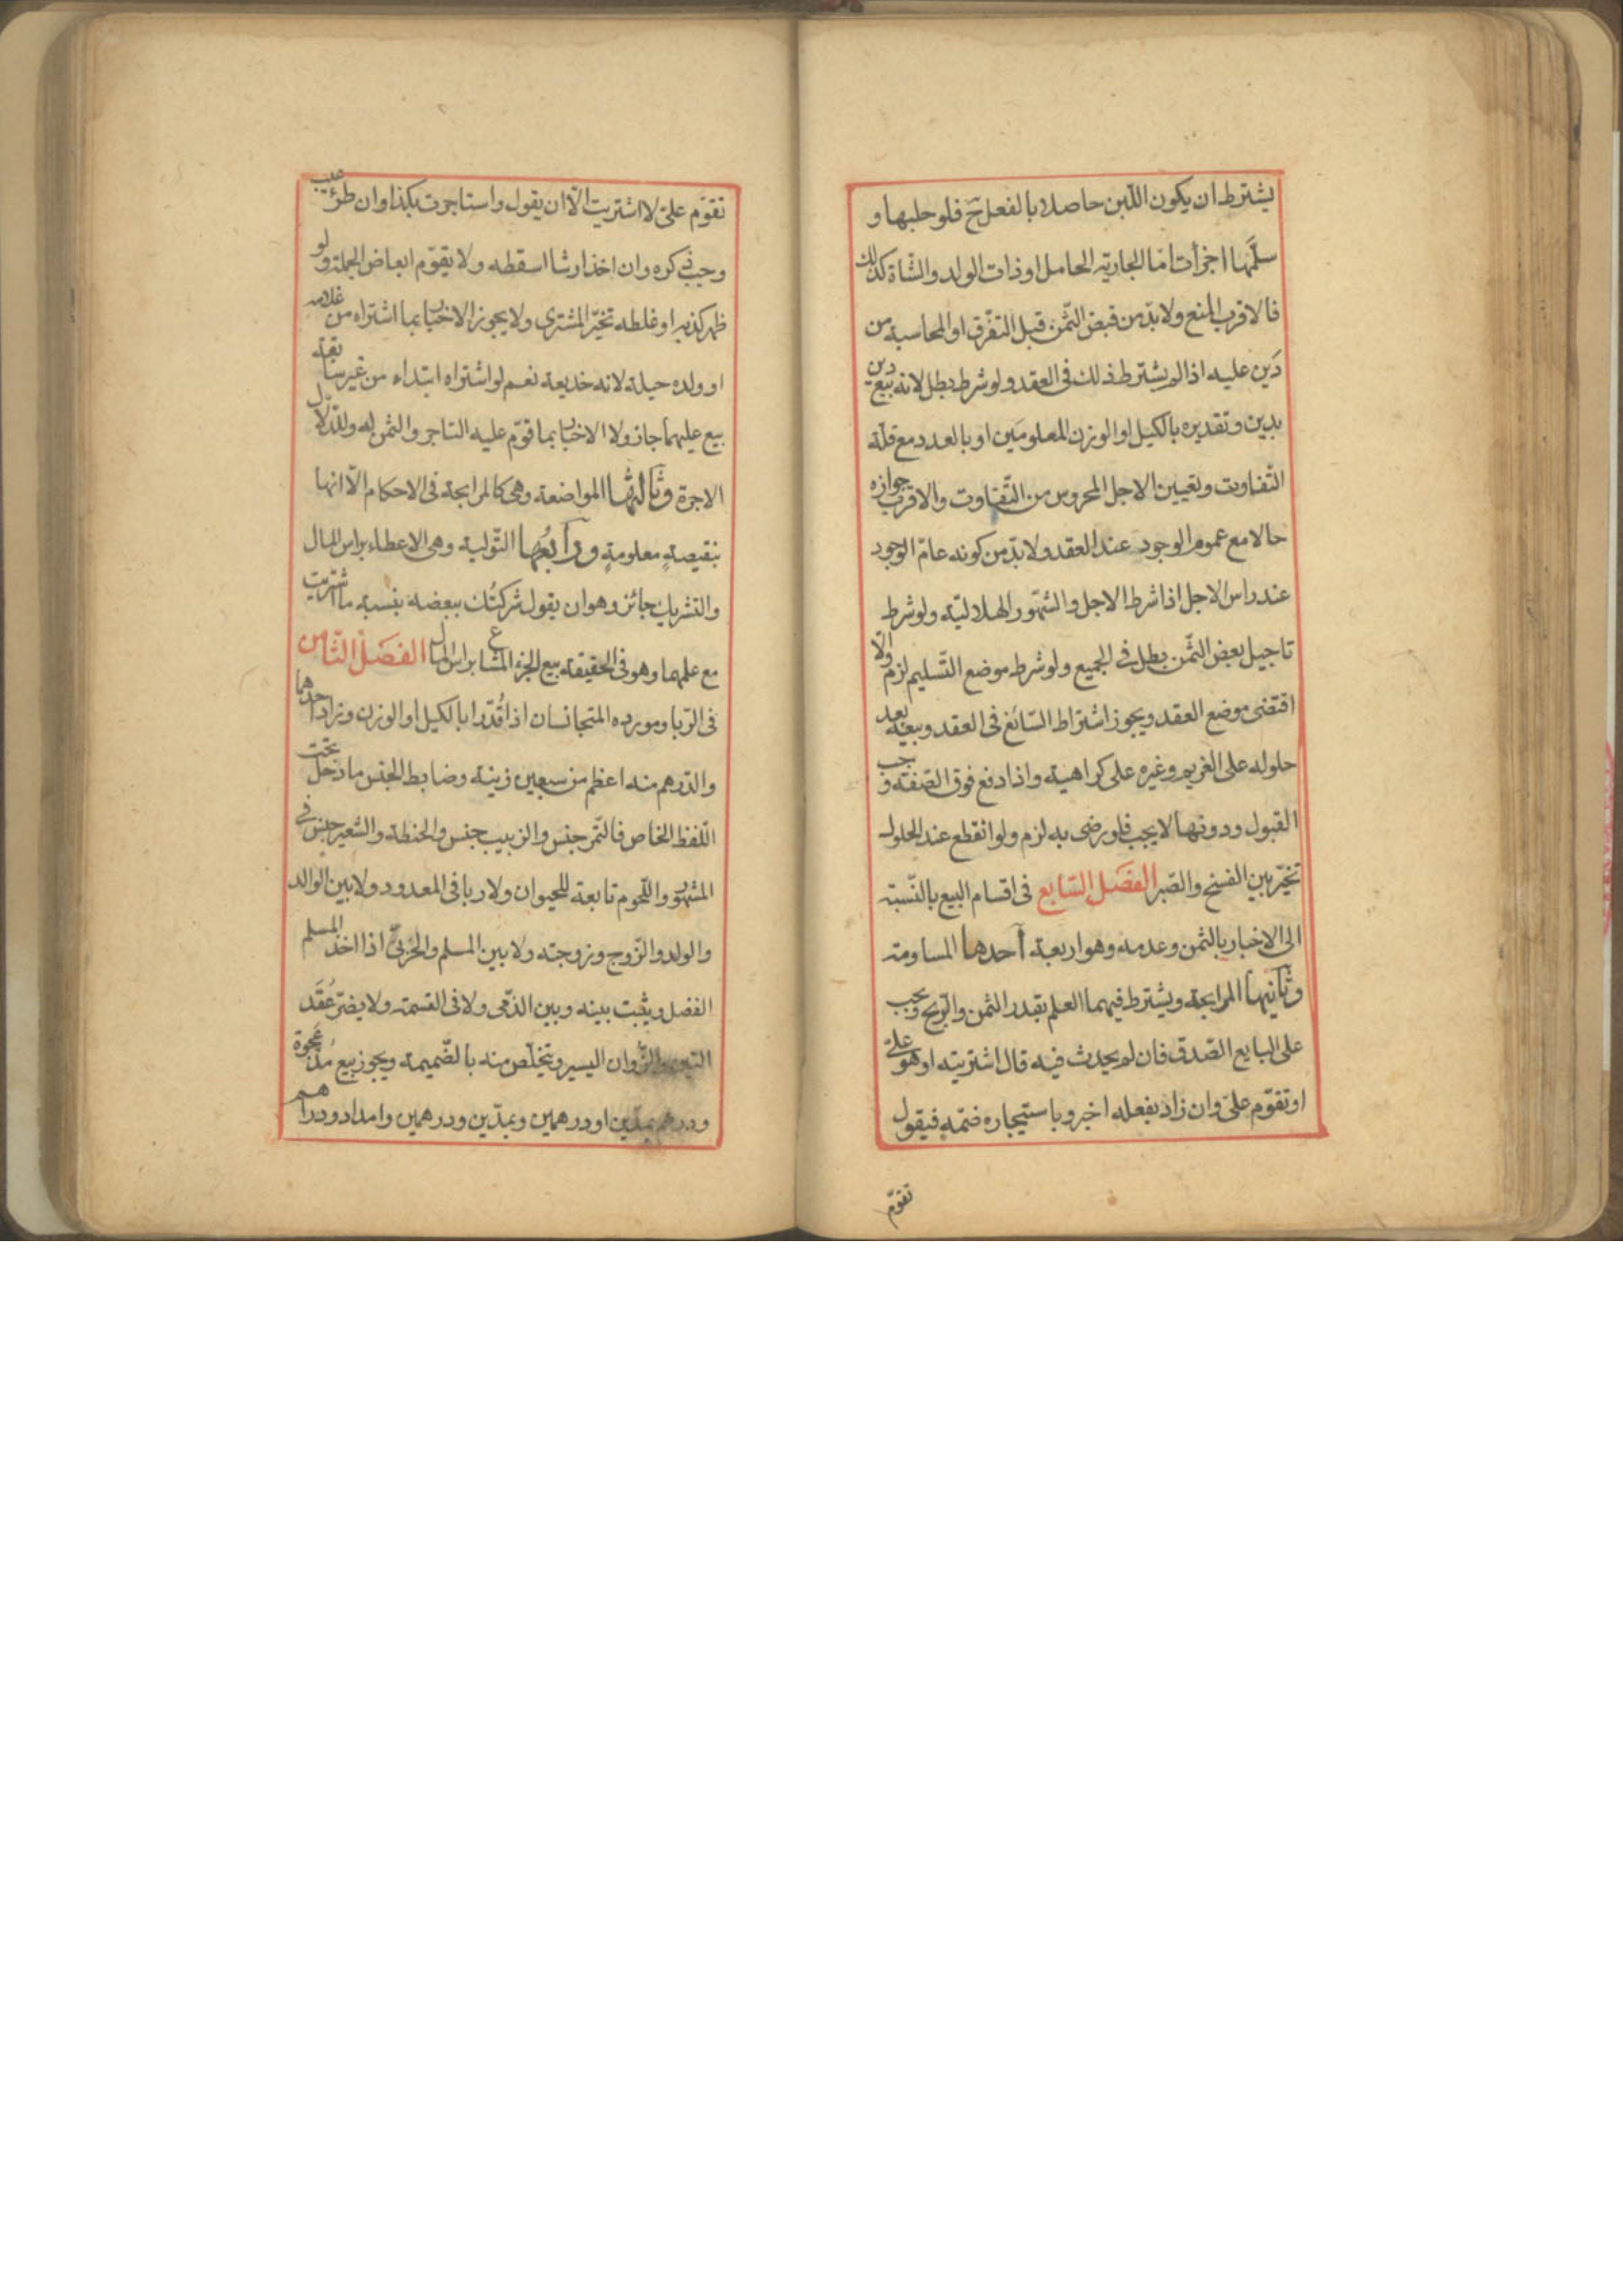 يشترط ان يكون اللّبن حاصلا بالفعل ح فلو حلبها و
سلّمها اجزأت امّا الجارية الحامل او ذات الولد والشّاة كذلك
فالاقرب المنع ولابدّ من قبض الثّمن قبل التفرّق او المحاسبة من
دَين عليه اذا لم يشترط ذلك فى العقد ولو شرط بطل لانه بيع دين
بدين وتقديره بالكيل او الوزن المعلومَين او بالعدد مع قلّة
التّفاوت وتعيين الاجل المحروس من التّفاوت والاقرب جوازه
حالا مع عموم الوجود عند العقد ولابدّ من كونه عامّ الوجود
عند راس الاجل اذا شرط الاجل والشّهور الهلاليّة ولو شرط
تاجيل بعض الثّمن بطل فى الجميع ولو شرط موضع التّسليم لزم والّا
اقتضى موضع العقد ويجوز اشتراط السّائغ فى العقد وبيعه بعد
حلوله على الغريم وغيره على كراهية واذا دفع فوق الصّفة وجب
القبول ودونها لايجب فلو رضى به لزم ولو انقطع عند الحلول
تخيّر بين الفسخ والصّبر الفصل السّابع فى اقسام البيع بالنّسبة
الى الاخبار بالثمن وعدمه وهو اربعة آحدها المساومة
وثانيها المرابحة ويشترط فيهما العلم بقدر الثمن والرّبح ويجب
على البايع الصّدق فان لم يحدث فيه قال اشتريته او هو علىّ
او تقوّم علىّ وان زاد بفعله اخبر وباستيجاره ضمّه فيقول
تقوّم
تقوّم علىّ لا اشتريت الّا ان يقول واستاجرت بكذا وان طرء عيب
وجب ذكره وان اخذ ارشا اسقطه ولا يقوّم ابعاض الجملة ولو
ظهر كذبه او غلطه تخيّر المشترى ولايجوز الاخبار بما اشتراه من غلامه
او ولده حيلة لانه خديعة نعم لو اشتراه ابتداء من غير سابقة
بيع عليهما جاز ولا الاخبار بما قوّم عليه التاجر والثمن له وللدّلّال
الاجرة وثالثها المواضعة وهى كالمرابحة فى الاحكام الّا انها
بنقيصةٍ معلومةٍ ورآبعُها التّولية وهى الاعطاء براس المال
والتشريك جائز وهو ان يقول شركتُك ببعضه بنسبة ما اشتريت
مع علمهما وهو فى الحقيقة بيع الجزء المشاع براس المال الفصل الثّامن
فى الرّبا ومورده المتجانسان اذا قُدّرا بالكيل او الوزن وزاد احدهما
والدّرهم منه اعظم من سبعين زنية وضابط الجنس ما دخل تحت
اللّفظ الخاص فالتّمر جنس والزبيب جنس والحنطة والشّعير جنس فى
المشهور واللّحوم تابعة للحيوان ولا ربا فى المعدود ولا بين الوالد
والولد والزّوج وزوجته ولا بين المسلم والحَربىّ اذا اخذ المسلم
الفضل ويثبت بينه وبين الذّمى ولا فى القسمة ولايضرّ عُقَد
التبن والزّوان اليسير ويتخلّص منه بالضّميمة ويجوز بيع مُدّ عجوة
ودرهم بمدّين او درهمين وبمدّين ودرهمين وامداد ودراهم